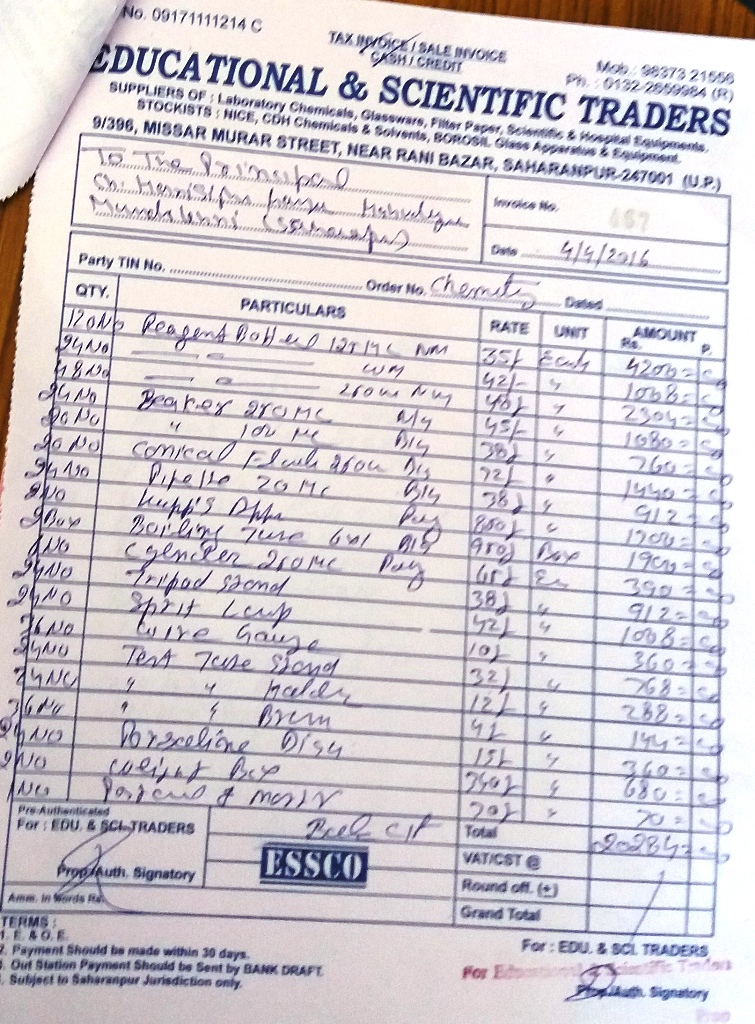 No. 09171111214 C
TAX INVOICE / SALE INVOICE
CASH / CREDIT
Mob.: 98373 21556
Ph.: 0132-2659984 (R)
EDUCATIONAL & SCIENTIFIC TRADERS
SUPPLIERS OF : Laboratory Chemicals, Glassware, Filter Paper, Scientific & Hospital Equipments.
STOCKISTS : NICE, CDH Chemicals & Solvents, BOROSIL Glass Apparatus & Equipment.
9/396, MISSAR MURAR STREET, NEAR RANI BAZAR, SAHARANPUR-247001 (U.P.)
To The Principal
Invoice No. 457
Date 4/4/2016
Party TIN No. Order No. Dated
QTY. PARTICULARS RATE UNIT AMOUNT
Rs. P.
120 No Reagent 125 ML NM 35/- Each 4200=
24 No WM 42/- " 1008=
48 No 250 NM 48/- " 2304=
24 No Beaker 250 ML 45/- " 1080=
20 No " 100 ML 38/- " 760=
20 No Conical Flask 250 72/- " 1440=
24 No Pipette 20 ML 38/- " 912=
2 No Kipp's App 850/- "
2 Box Boiling Tube 950/- Box 1900=
No 250 ML 390=
24 No Tripod Stand 38/- " 912=
24 No Spirit Lamp 42/- " 1008=
36 No Wire Gauze 10/- " 360=
24 No Test Tube Stand 32/- " 768=
24 No " " Holder 12/- " 288=
36 No " " 4/- " 144=
24 No Dish 15/- " 360=
2 No Box 340/- " 680=
1 No 70/- " 70=
Pre-Authenticated
For : EDU. & SCI. TRADERS
Total 20284=
ESSCO
VAT/CST @
Prop./Auth. Signatory
Round off. (±)
Amm. in Words Rs.
Grand Total
TERMS :
1. E. & O. E.
2. Payment Should be made within 30 days.
Out Station Payment Should be Sent by BANK DRAFT.
Subject to Saharanpur Jurisdiction only.
For : EDU. & SCI. TRADERS
For Educational & Scientific Traders
Prop./Auth. Signatory
Prop